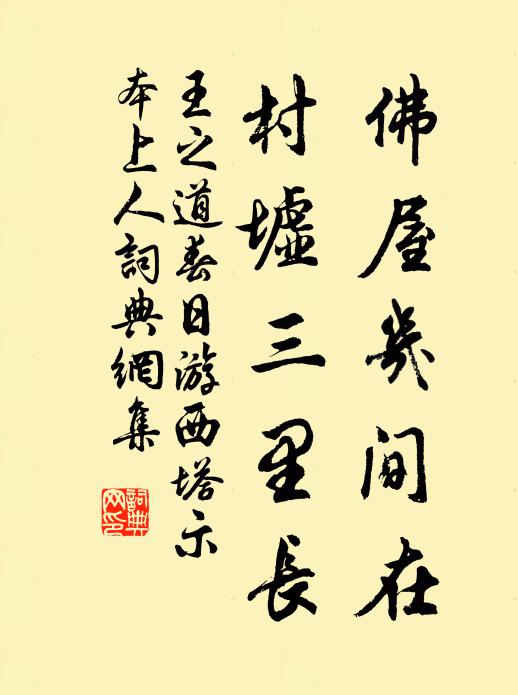 佛屋幾間在
村墟三里長
王之道春日游西塔示
本上人詞典網集
詞典网印